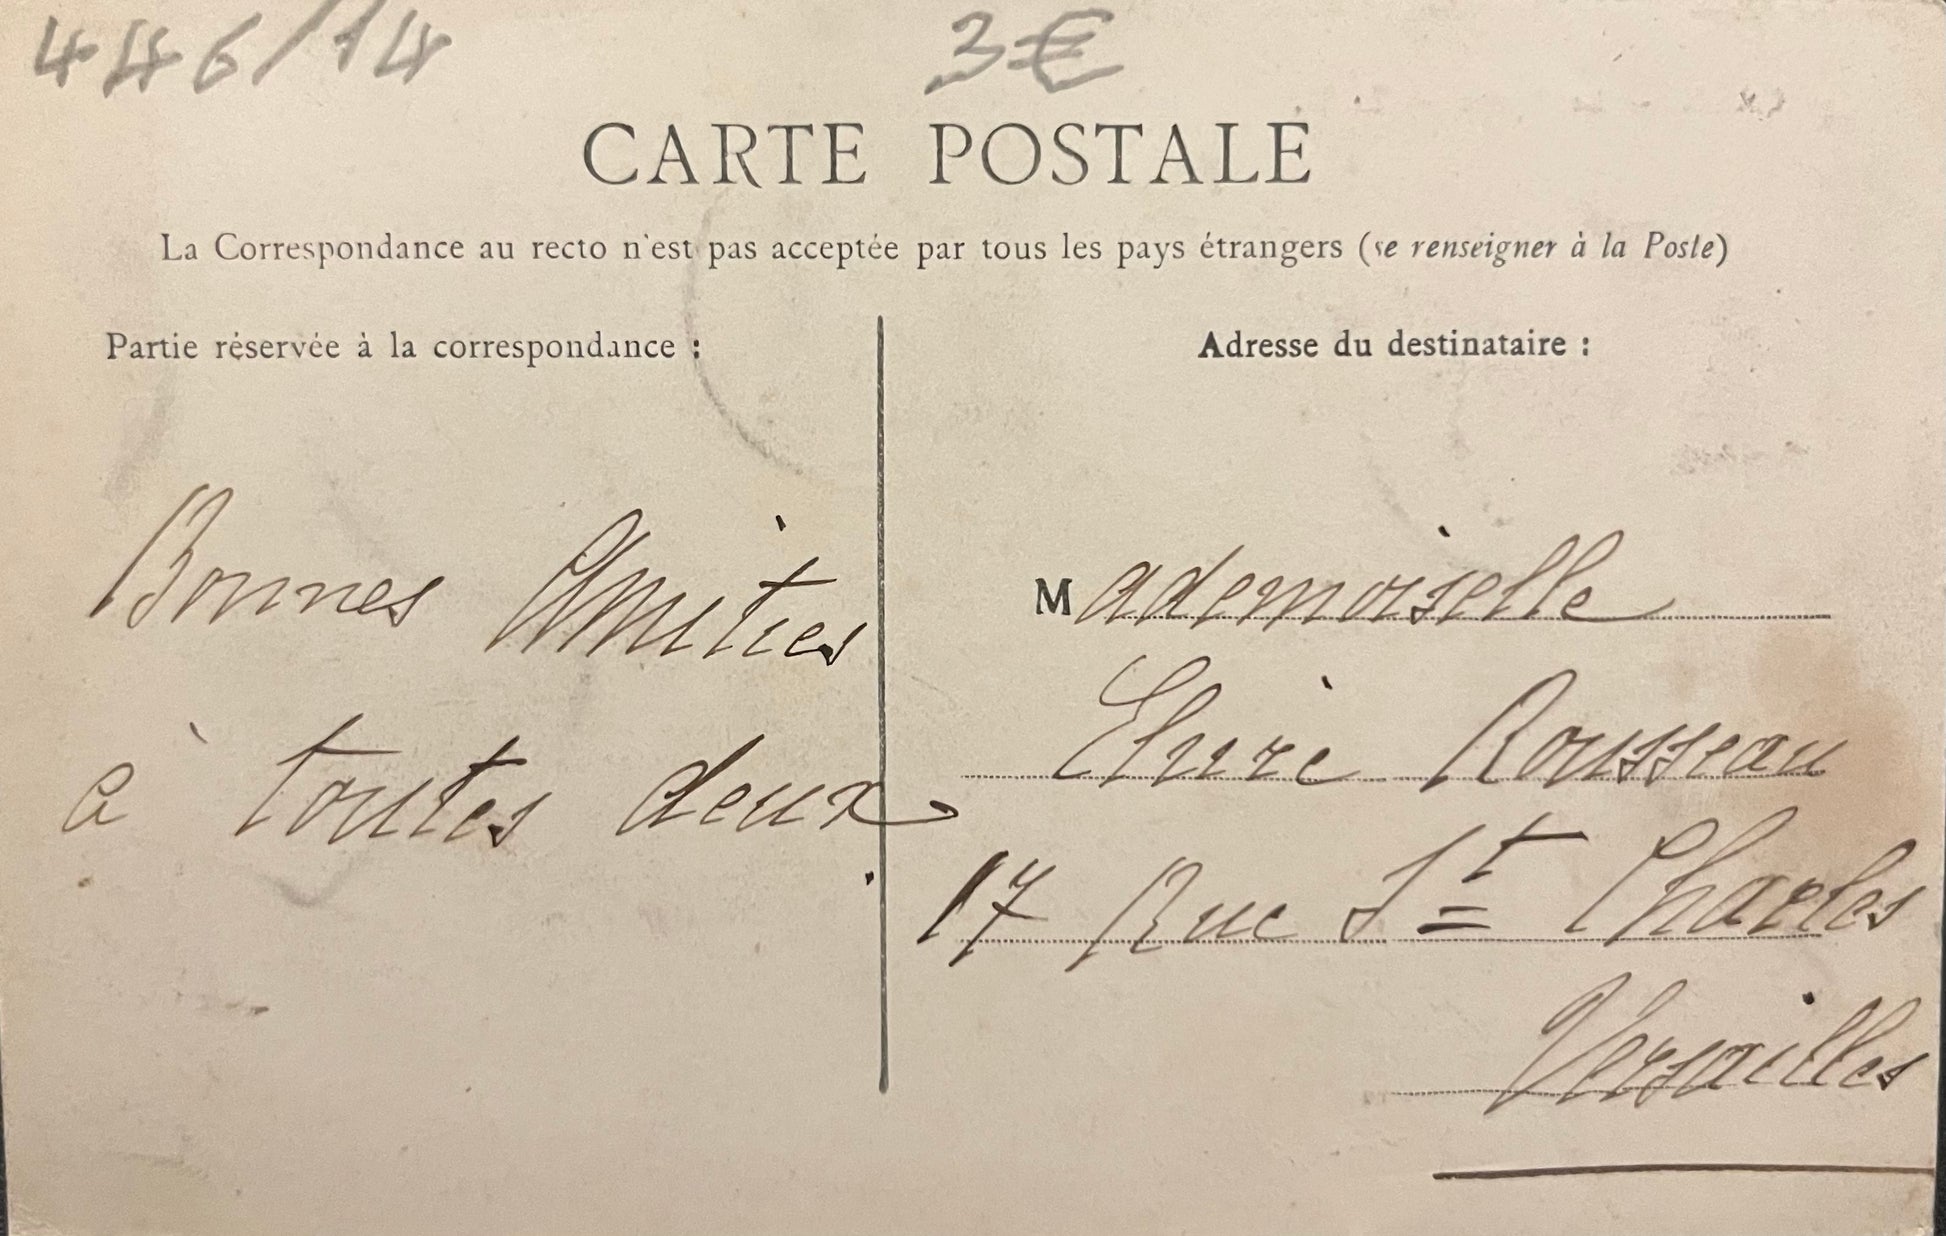 446/14
3€
CARTE POSTALE
La Correspondance au recto n'est pas acceptée par tous les pays étrangers (se renseigner à la Poste)
Partie réservée à la correspondance :
Bonnes Amitiés
à toutes deux.
Adresse du destinataire :
Mademoiselle
Rousseau
17 Rue St Charles
Versailles